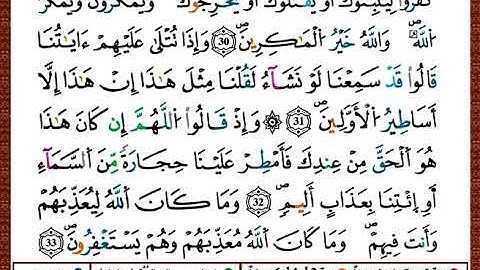 كَفَرُوا۟ لِيُثْبِتُوكَ أَوْ يَقْتُلُوكَ أَوْ يُخْرِجُوكَ ۚ وَيَمْكُرُونَ وَيَمْكُرُ
ٱللَّهُ ۖ وَٱللَّهُ خَيْرُ ٱلْمَـٰكِرِينَ ۝30 وَإِذَا تُتْلَىٰ عَلَيْهِمْ ءَايَـٰتُنَا
قَالُوا۟ قَدْ سَمِعْنَا لَوْ نَشَآءُ لَقُلْنَا مِثْلَ هَـٰذَا إِنْ هَـٰذَا إِلَّا
أَسَاطِيرُ ٱلْأَوَّلِينَ ۝31 ۞ وَإِذْ قَالُوا۟ ٱللَّهُمَّ إِن كَانَ هَـٰذَا
هُوَ ٱلْحَقَّ مِنْ عِندِكَ فَأَمْطِرْ عَلَيْنَا حِجَارَةً مِّنَ ٱلسَّمَآءِ
أَوِ ٱئْتِنَا بِعَذَابٍ أَلِيمٍ ۝32 وَمَا كَانَ ٱللَّهُ لِيُعَذِّبَهُمْ
وَأَنتَ فِيهِمْ ۚ وَمَا كَانَ ٱللَّهُ مُعَذِّبَهُمْ وَهُمْ يَسْتَغْفِرُونَ ۝33